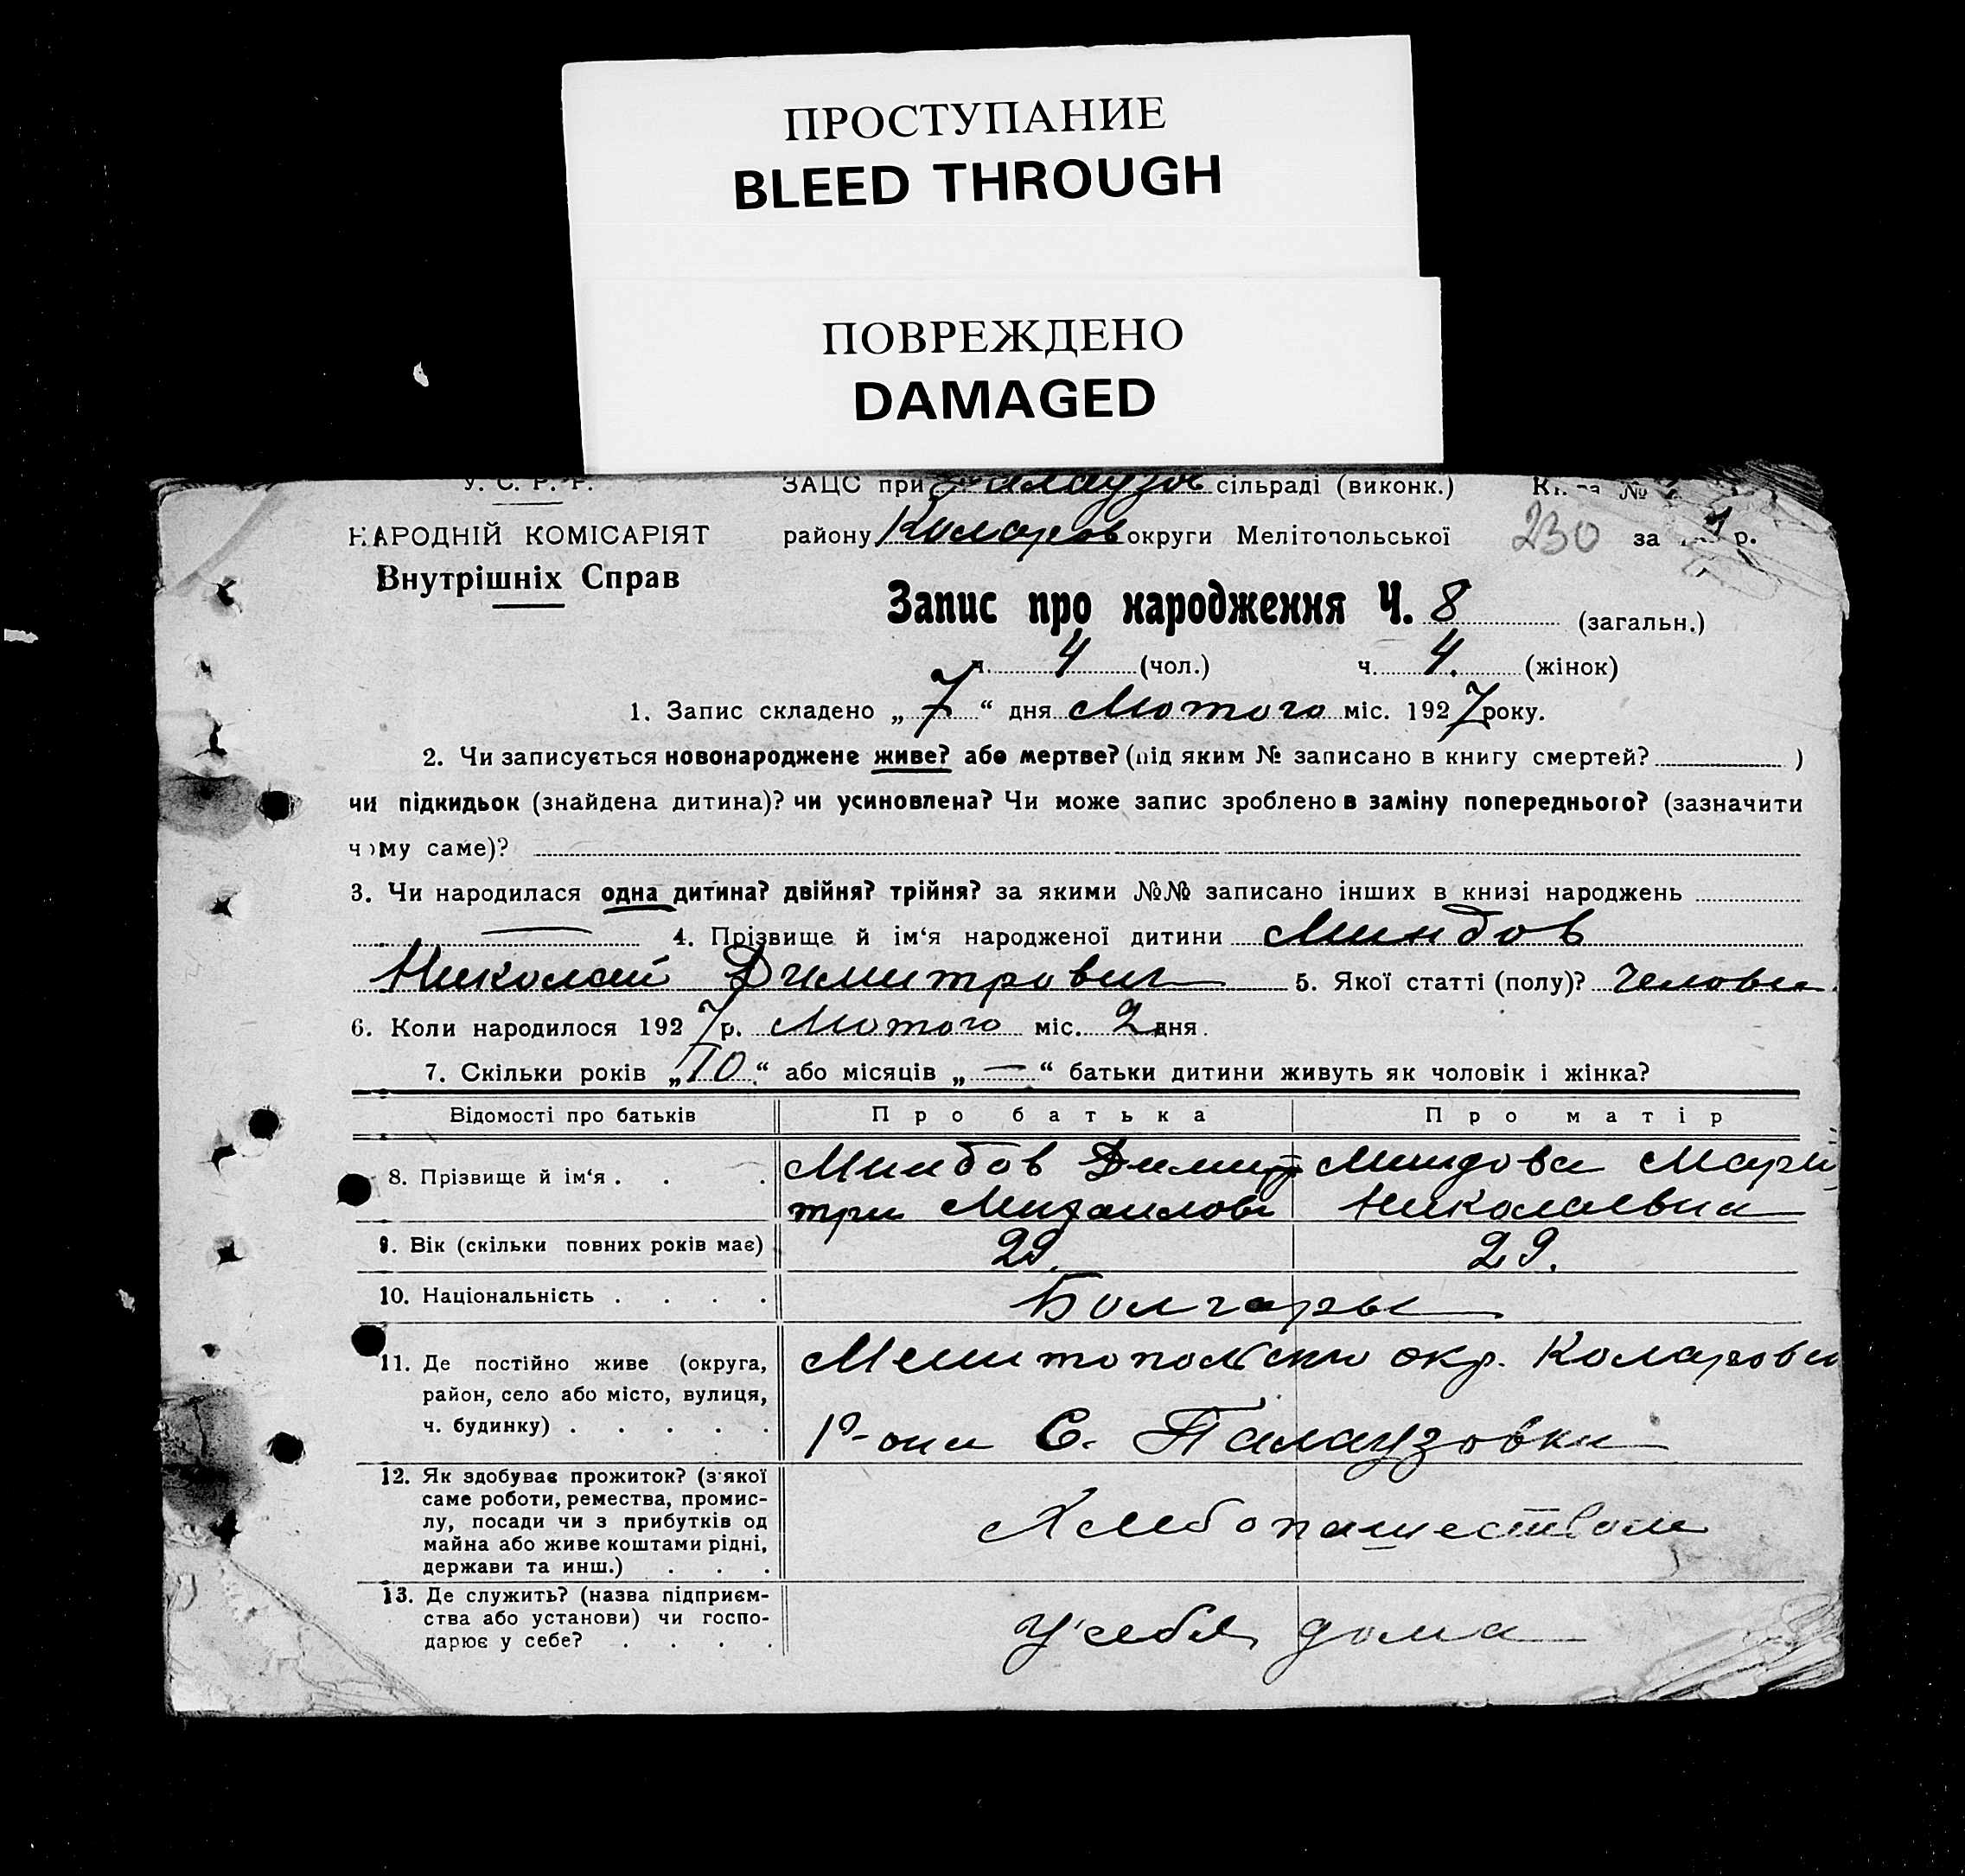 ПРОСТУПАНИЕ
BLEED THROUGH
ПОВРЕЖДЕНО
DAMAGED
У. С. Р. Р. ЗАЦС при Палаузов сільраді (виконк.) №
НАРОДНІЙ КОМІСАРІЯТ району Коларов округи Мелітопольської 230 за р.
Внутрішніх Справ
Запис про народження Ч. 8 (загальн.)
ч. 4 (чол.) ч. 4. (жінок)
1. Запис складено „ 7 “ дня Лютого міс. 1927 року.
2. Чи записується новонароджене живе? або мертве? (під яким № записано в книгу смертей? )
чи підкидьок (знайдена дитина)? чи усиновлена? Чи може запис зроблено в заміну попереднього? (зазначити
чому саме)?
3. Чи народилася одна дитина? двійня? трійня? за якими №№ записано інших в книзі народжень
— 4. Прізвище й ім‘я народженої дитини Миндов
Николай Димитрович 5. Якої статті (полу)? Челове
6. Коли народилося 1927 р. Лютого міс. 2 дня.
7. Скільки років „ 10 “ або місяців „ — “ батьки дитини живуть як чоловік і жінка?
Відомості про батьків Про батька Про матір
8. Прізвище й ім‘я . . . Миндов Дими Миндова Мари
три Михаилов Николаевна
9. Вік (скільки повних років має) 29. 29.
10. Національність . . . . Болгары
11. Де постійно живе (округа, Мелитопольско окр. Коларовск
район, село або місто, вулиця,
ч. будинку) . . . . . Р-она С. Палаузовки
12. Як здобуває прожиток? (з‘якої
саме роботи, ремества, промис-
лу, посади чи з прибутків од Хлебопашеством
майна або живе коштами рідні,
держави та инш.) . . .
13. Де служить? (назва підприєм-
ства або установи) чи госпо- у себя дома
дарює у себе? . . . .